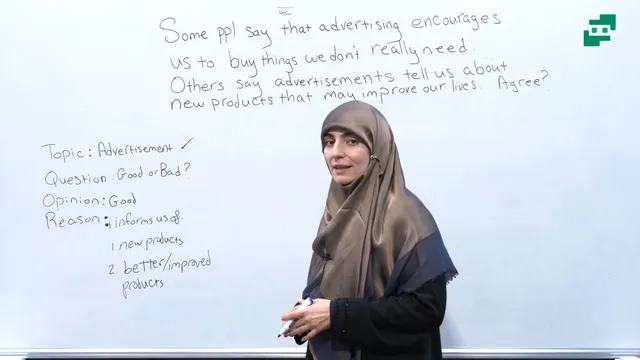 Some ppl say that advertising encourages
us to buy things we don't really need.
Others say advertisements tell us about
new products that may improve our lives. Agree?
Topic: Advertisement ✓
Question: Good or Bad?
Opinion: Good
Reason: informs us of:
1. new products
2. better/improved
products